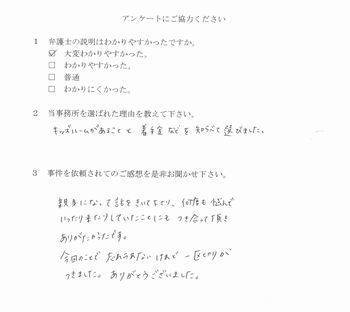 アンケートにご協力ください
1 弁護士の説明はわかりやすかったですか。
☑ 大変わかりやすかった。
□ わかりやすかった。
□ 普通
□ わかりにくかった。
2 当事務所を選ばれた理由を教えて下さい。
キッズルームがあることと着手金などを知らべて選びました。
3 事件を依頼されてのご感想を是非お聞かせ下さい。
親身になって話をきいてもらい、何度も悩んで
いったり来たりしていたことにもつき合って頂き
ありがたかったです。
今回のことで 忘れられないけれど 一区切りが
つきました。ありがとうございました。